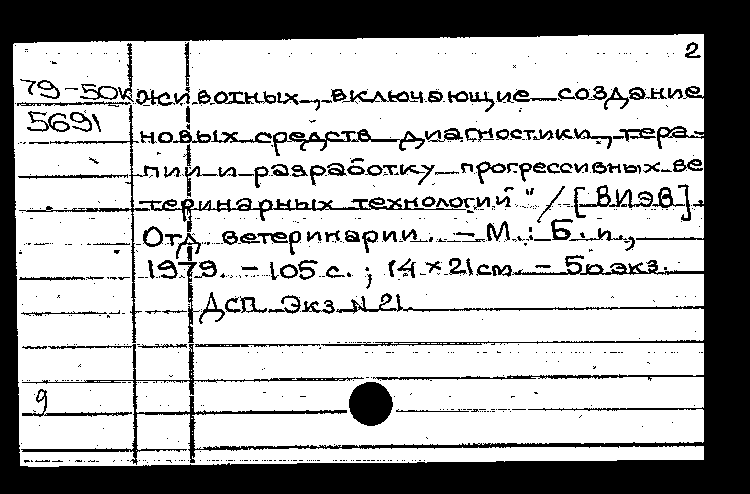 2
79-50к животных, включающие создание
5691 новых средств диагностики, тера-
пии и разработку прогрессивных ве
теринарных технологий" / [ВИЭВ].
Отд ветеринарии. - М.: Б. и.,
1979. - 105 с. ; 14 × 21 см. - 50 экз.
Дсп Экз N 21.
9